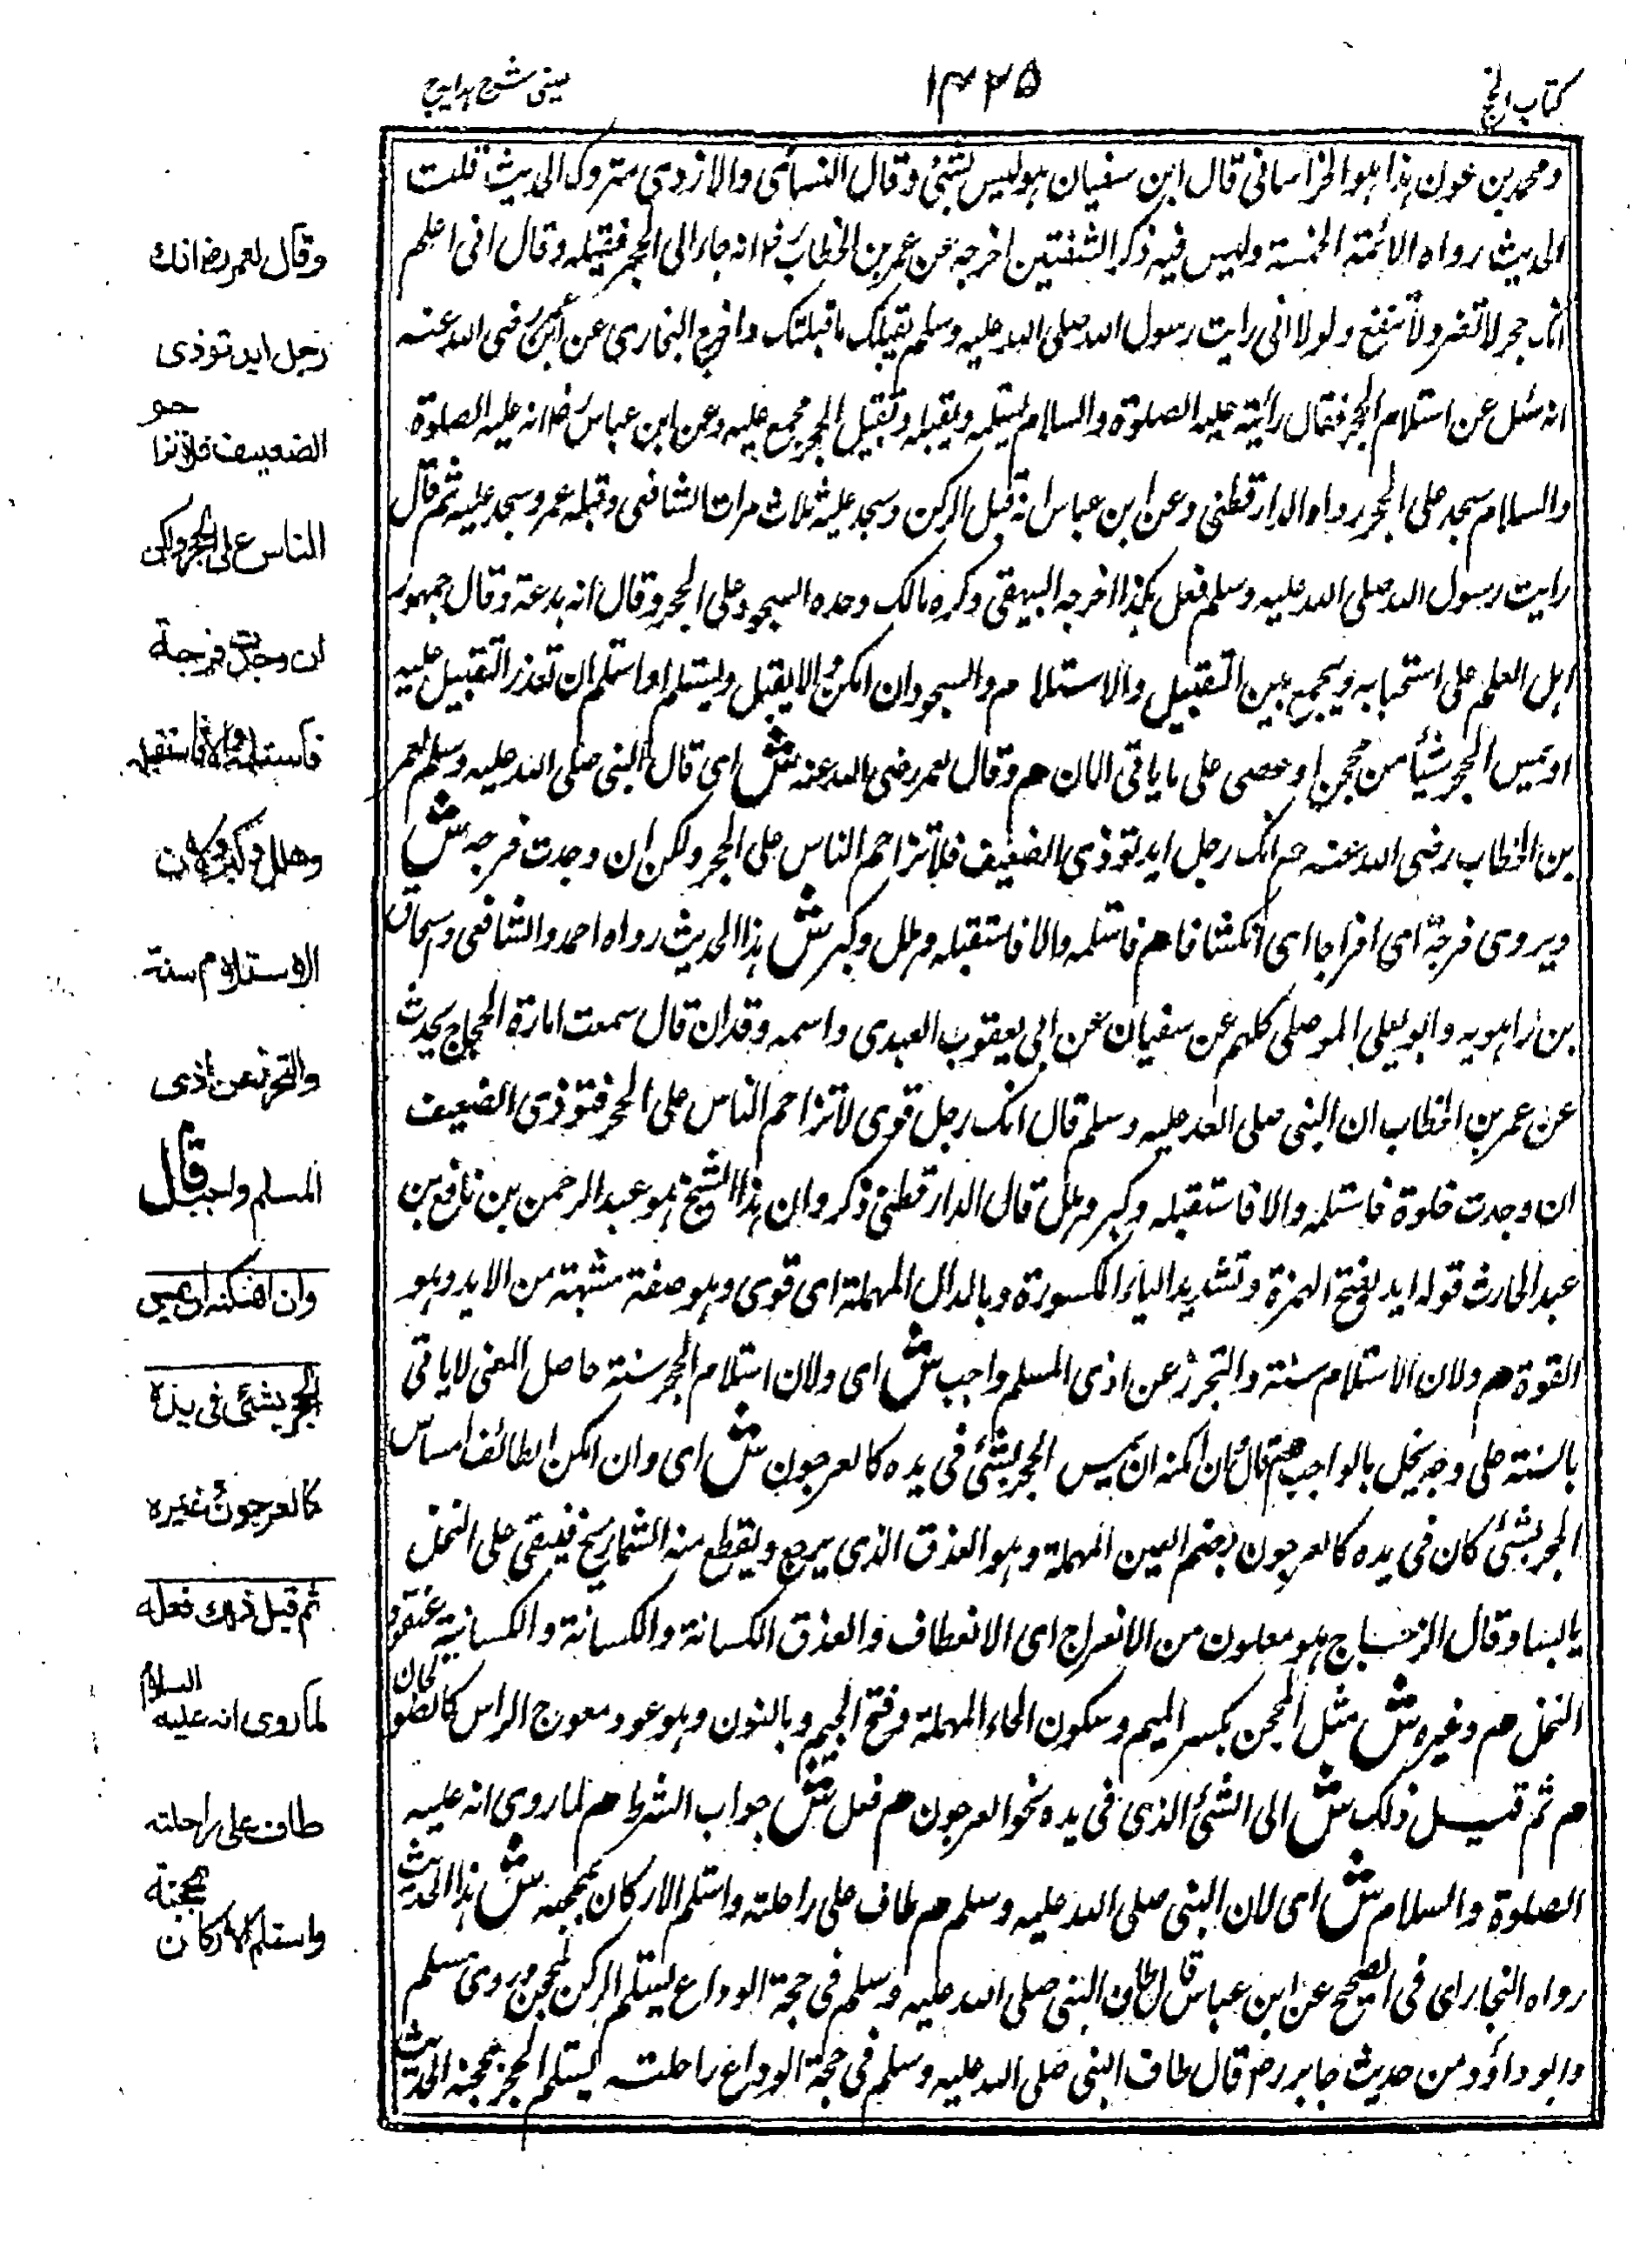 كتاب الحج
١٤٢٥
عينى شرح هدايه
ومحمد بن عون هذا هو الخراسانى قال ابن سفيان هو ليس بشئ وقال النسائى والازدى متروك الحديث قلت
الحديث رواه الائمة الخمسة وليس فيه ذكر الشفتين اخرجه عن عمر بن الخطاب رض انه جاء الى الحجر فقبله وقال انى اعلم
انك حجر لا تضر ولا تنفع ولولا انى رايت رسول الله صلى الله عليه وسلم يقبلك ما قبلتك واخرج البخارى عن ابن عمر رضى الله عنه
انه سئل عن استلام الحجر فقال رأيته عليه الصلوة والسلام يستلمه ويقبله وتقبيل الحجر مجمع عليه وعن ابن عباس رض انه عليه الصلوة
والسلام سجد على الحجر رواه الدارقطنى وعن ابن عباس انه قبل الركن وسجد عليه ثلاث مرات الشافعى وقبله عمر وسجد عليه ثم قال
رايت رسول الله صلى الله عليه وسلم فعل هكذا اخرجه البيهقى وكره مالك وحده السجود على الحجر وقال انه بدعة وقال جمهور
اهل العلم على استحبابه ويجمع بين التقبيل والاستلام والسجود ان امكن والا يقبل ويستلم او استلم ان تعذر التقبيل عليه
او يمس الحجر شيأ من محجن او عصى على ما ياتى الان هم وقال لعمر رضى الله عنه ش اى قال النبى صلى الله عليه وسلم لعمر
بن الخطاب رضى الله عنه هم انك رجل ايد تؤذى الضعيف فلا تزاحم الناس على الحجر ولكن ان وجدت فرجه ش
ويروى فرجة اى افراجا اى انكشافا هم فاستلمه والا فاستقبله وهلل وكبر ش هذا الحديث رواه احمد والشافعى واسحاق
بن راهويه وابو يعلى الموصلى كلهم عن سفيان عن ابى يعقوب العبدى واسمه وقدان قال سمعت امارة الحجاج يحدث
عن عمر بن الخطاب ان النبى صلى الله عليه وسلم قال انك رجل قوى لا تزاحم الناس على الحجر فتؤذى الضعيف
ان وجدت خلوة فاستلمه والا فاستقبله وكبر وهلل قال الدارقطنى ذكر وان هذا الشيخ هو عبد الرحمن بن نافع بن
عبد الحارث قوله ايد بفتح الهمزة وتشديد الياء المكسورة وبالدال المهملة اى قوى وهو صفة مشبهة من الايد وهو
القوة هم ولان الاستلام سنة والتحرز عن اذى المسلم واجب ش اى ولان استلام الحجر سنة حاصل المعنى لا ياتى
بالسنة على وجه يخل بالواجب هم قال وان امكنه ان يمس الحجر بشئ فى يده كالعرجون ش اى وان امكن الطائف امساس
الحجر بشئ كان فى يده كالعرجون بضم العين المهملة وهو العذق الذى يرجع ويقطع منه الشماريخ فيبقى على النخل
يابسا وقال الزجاج هو معلون من الانعراج اى الانعطاف والعذق الكسانة والكسانة والكسانية عنقود
النخل هم وغيره ش مثل المحجن بكسر الميم وسكون الحاء المهملة وفتح الجيم وبالنون وهو عود معوج الراس كالطولجان
هم ثم قبل ذلك ش الى الشئ الذى فى يده نحو العرجون هم فعل ش جواب الشرط هم لما روى انه عليه
الصلوة والسلام ش اى لان النبى صلى الله عليه وسلم هم طاف على راحلته واستلم الاركان بمحجنه ش هذا الحديث
رواه البخارى فى الصحيح عن ابن عباس قال طاف النبى صلى الله عليه وسلم فى حجة الوداع يستلم الركن بمحجن وروى مسلم
وابو داؤد من حديث جابر رض قال طاف النبى صلى الله عليه وسلم فى حجة الوداع راحلته يستلم الحجر بمحجنه الحديث
وقال لعمر رض انك
رجل ايد توذى
الضعيف فلا تزاحمو
الناس على الحجر ولكن
ان وجدت فرجة
فاستلمه والا فاستقبله
وهلل وكبر ولان
الاستلام سنة
والتحرز عن اذى
المسلم واجب قال
وان امكنه ان يمس
الحجر بشئ فى يده
كالعرجون وغيره
ثم قبل ذلك فعله
لما روى انه عليه السلام
طاف على راحلته
واستلم الاركان بمحجنة